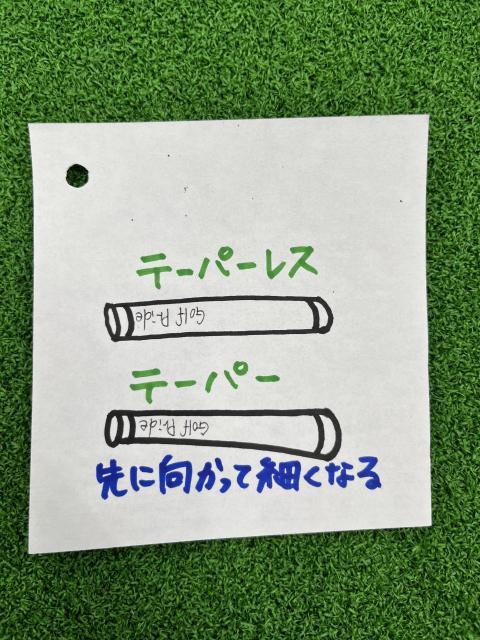 テーパーレス
Golf Pride
テーパー
Golf Pride
先に向かって細くなる